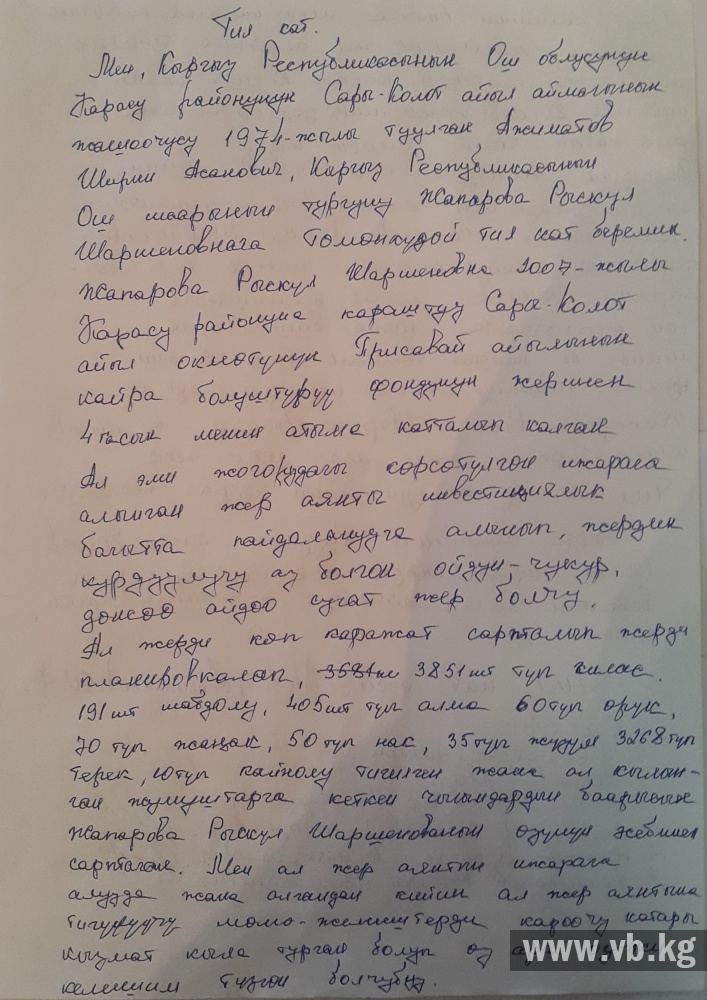 Тил кат.
Мен, Кыргыз Республикасынын Ош облусунун
Карасу районунун Сары-Колот айыл аймагынын
жашоочусу 1974-жылы туулган Ажиматов
Ширин Асанович, Кыргыз Республикасынын
Ош шаарынын тургуну Жапарова Рыскул
Шаршеновнага Томонкудой тил кат беремин.
Жапарова Рыскул Шаршеновна 2007-жылы
Карасу районуна караштуу Сары-Колот
айыл окмотунун Присавай айылынын
кайра болуштуруу фондунун жеринен
4 гасын менин атыма катталып калган
Ал эми жогорудагы корсотулгон ижарага
алынган жер аянты инвестициялык
багытта пайдаланууга алынып, жердин
курдуулугу аз болгон ойдун-чукур,
донсоо айдоо сугат жер болчу.
Ал жерди коп каражат сарпталып жерди
планировкалап, 3851шт туп
191 шт шабдалу, 405шт туп алма 60 туп орук,
70 туп жаңгак, 50 туп нак, 35туп 3268 туп
терек, 10туп кайналу тигилген жана ал кылын-
ган жумуштарга кеткен чыгымдардын баарысын
Жапарова Рыскул Шаршенованын озунун эсебинен
сарптаган. Мен ал жер аянтын ижарага
алууда жана алгандан кийин ал жер аянтына
момо-жемиштерди кароочу катары
кызмат кыла турган болуп оз
келишим тузгон болчубуз.
www.vb.kg